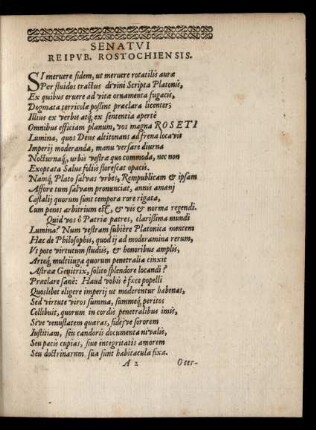 SENATVI
REIPVB. ROSTOCHIENSIS.
SI meruere fidem, ut meruere rotatilis auræ
Per fluidos tractus divini Scripta Platonis,
Ex quibus eruere ad vitæ ornamenta fugacis,
Dogmata terricolæ possint præclara licenter;
Illius ex verbis atq́ ex sententia apertè
Omnibus efficiam planum, vos magna ROSETI
Lumina, quos Deus altitonans ad frena locavit
Imperij moderanda, manu versare diurna
Nocturnaq́, urbis vestræ quo commoda, nec non
Exoptata Salus foliis florescat opacis.
Namq́, Plato salvas urbes, Rempublicam & ipsam
Affore tum salvam pronunciat, amnis avavnj
Castalij quorum sunt tempora rore rigata,
Cum penes arbitrium est, & vis & norma regendi.
Quid vos ô Patriæ patres, clarissima mundi
Lumina? Num vestram subiere Platonica mentem
Hæc de Philosophis, quod ij ad moderamina rerum,
Vt pote virtutum studiis, & honoribus amplis,
Arteq́, multiiuga quorum penetralia cinxit
Astræa Genitrix, solito splendore locandi?
Præclare sanè: Haud vobis è fæce popelli
Quoslibet eligere imperij ut moderentur habenas,
Sed virtute viros summa, summeq́ peritos
Collibuit, quorum in cordis penetralibus imis,
Sive venustatem quæras, fulisve sororem
Iustitiam, seu candoris documenta nivalis,
Seu pacis cupias, sive integritatis amorem
Seu doctrinarum, sua sunt habitacula fixa.
A 2 Otto-